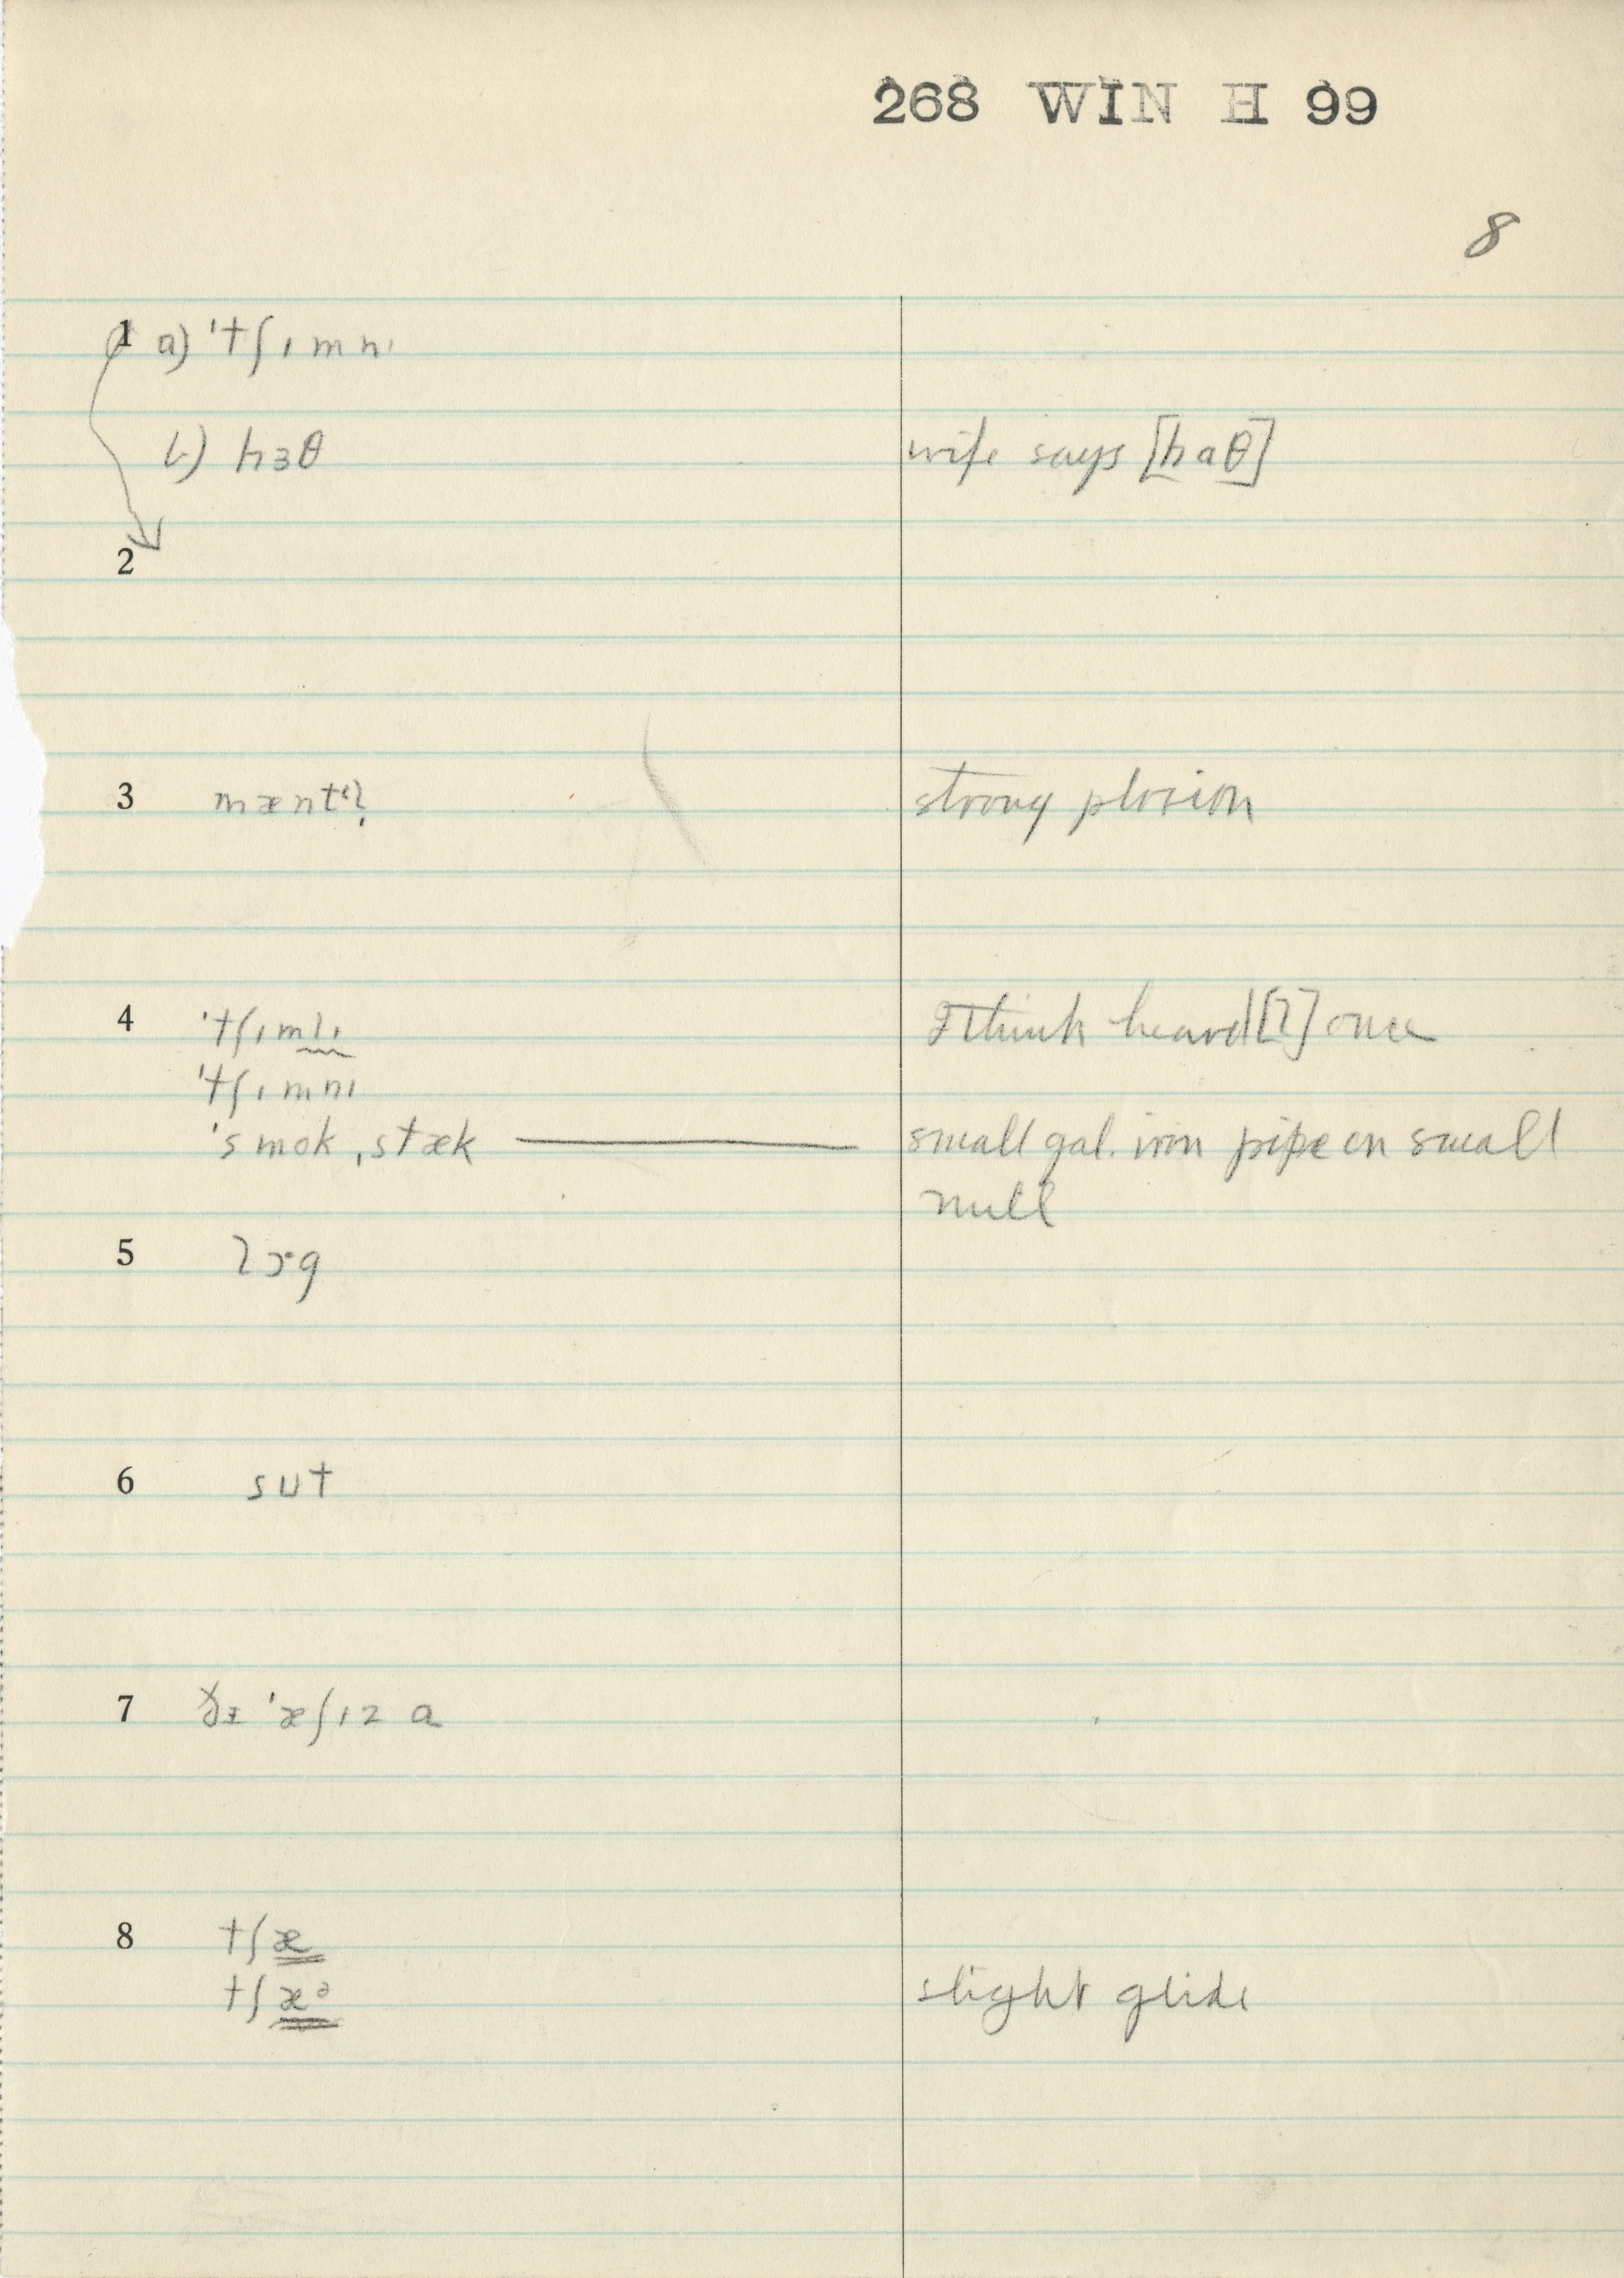 268 WIN H 99
8
1 a) 'tʃɩmnɩ
b) hɜθ wife says [haθ]
2
3 strong plosion
4 'tʃɩmlɩ I think heard [l] once
'tʃɩmnɩ
'smok ˌstæk small gal. iron pipe on small
mill
5 lɔg
6 sut
7 'æʃɩz a
8 tʃæ
tʃæᵊ slight glide